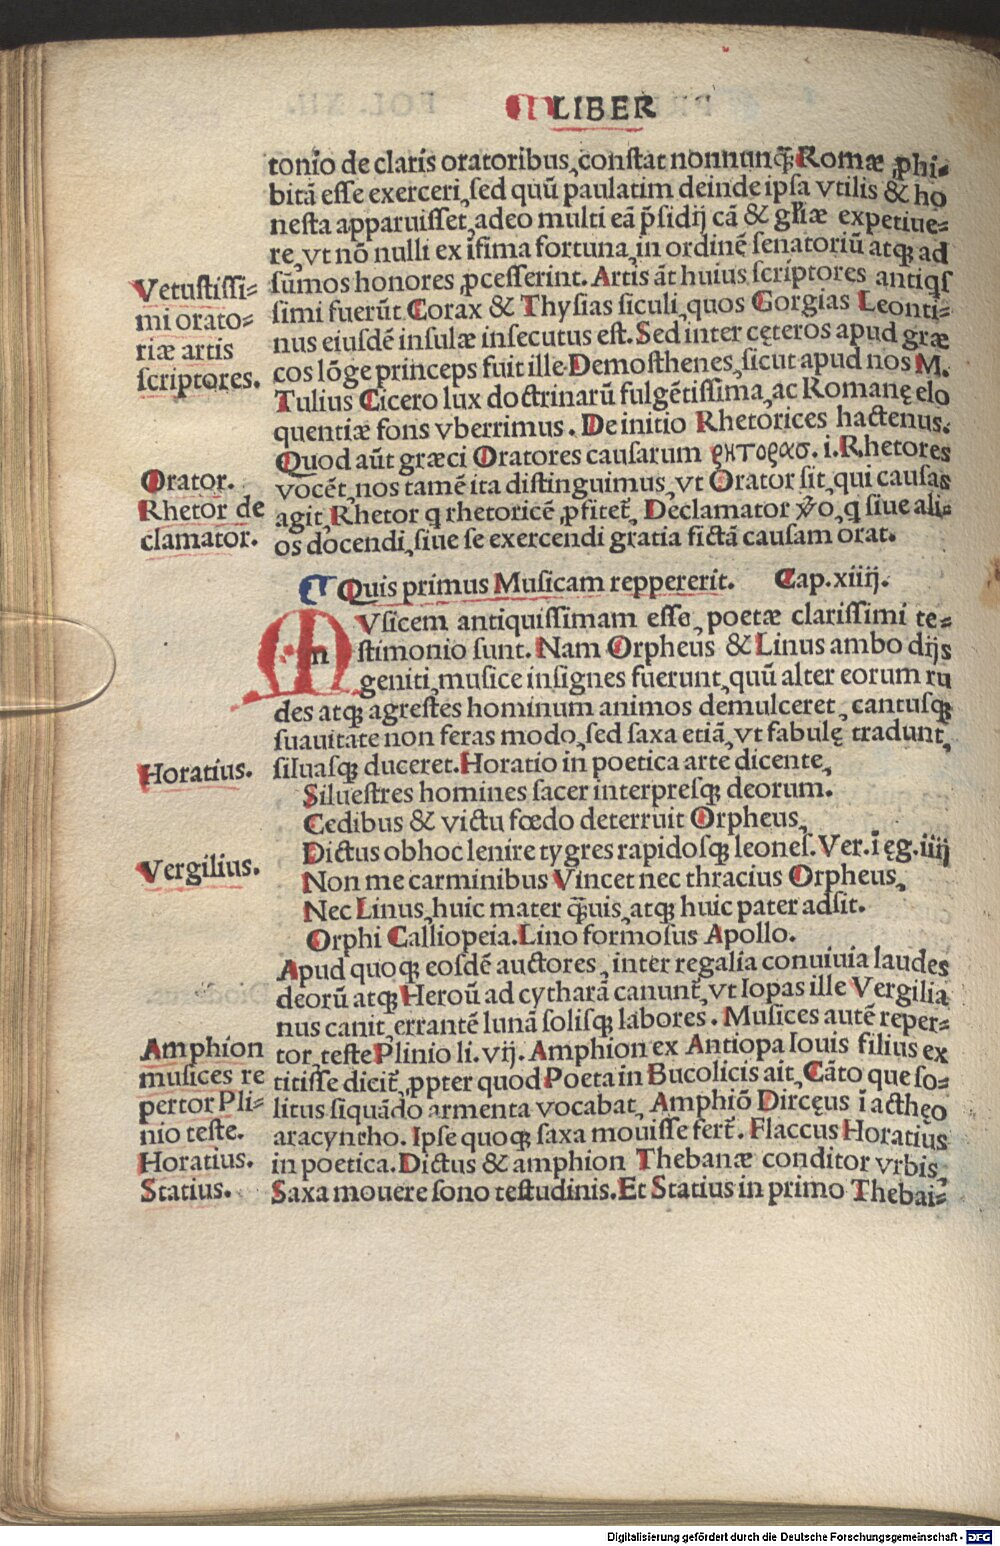 LIBER
tonio de claris oratoribus, constat nonnunq̃ Romæ ꝓhi-
bitã esse exerceri, sed quũ paulatim deinde ipsa vtilis & ho
nesta apparuisset, adeo multi eã p̃sidij cã & gl'iæ expetiue-
re, vt nõ nulli ex ĩfima fortuna, in ordinẽ senatoriũ atqꝫ ad
sũmos honores ꝓcesserint. Artis ãt huius scriptores antiqs
simi fuerũt Corax & Thysias siculi, quos Gorgias Leonti-
nus eiusdẽ insulæ insecutus est. Sed inter cęteros apud græ
cos lõge princeps fuit ille Demosthenes, sicut apud nos M.
Tulius Cicero lux doctrinarũ fulgẽtissima, ac Romanę elo
quentiæ fons vberrimus. De initio Rhetorices hactenus.
Quod aũt græci Oratores causarum ρητορασ. i. Rhetores
vocẽt, nos tamẽ ita distinguimus, vt Orator sit, qui causas
agit, Rhetor q rhetoricẽ ꝓfitet̃, Declamator ṽo, q siue ali-
os docendi, siue se exercendi gratia fictã causam orat.
Vetustissi-
mi orato-
riæ artis
scriptores.
Orator.
Rhetor de
clamator.
¶ Quis primus Musicam reppererit. Cap. xiiij.
MVsicem antiquissimam esse, poetæ clarissimi te-
stimonio sunt. Nam Orpheus & Linus ambo dijs
geniti, musice insignes fuerunt, quũ alter eorum ru
des atqꝫ agrestes hominum animos demulceret, cantusqꝫ
suauitate non feras modo, sed saxa etiã, vt fabulę tradunt,
siluasqꝫ duceret. Horatio in poetica arte dicente,
Siluestres homines sacer interpresqꝫ deorum.
Cedibus & victu fœdo deterruit Orpheus,
Dictus obhoc lenire tygres rapidosqꝫ leones. Ver. ĩ ęg. iiij
Non me carminibus Vincet nec thracius Orpheus,
Nec Linus, huic mater q̃uis, atqꝫ huic pater adsit.
Orphi Calliopeia. Lino formosus Apollo.
Apud quoqꝫ eosdẽ auctores, inter regalia conuiuia laudes
deorũ atqꝫ Heroũ ad cytharã canunt̃, vt Iopas ille Vergilia
nus canit, errantẽ lunã solisqꝫ labores. Musices autẽ reper-
tor, teste Plinio li. vij. Amphion ex Antiopa Iouis filius ex
titisse dicit̃, ꝓpter quod Poeta in Bucolicis ait, Cãto que so-
litus siquãdo armenta vocabat, Amphiõ Dircęus ĩ acthęo
aracyncho. Ipse quoqꝫ saxa mouisse fert̃. Flaccus Horatius
in poetica. Dictus & amphion Thebanæ conditor vrbis,
Saxa mouere sono testudinis. Et Statius in primo Thebai-
Horatius.
Vergilius.
Amphion
musices re
pertor Pli-
nio teste.
Horatius.
Statius.
Digitalisierung gefördert durch die Deutsche Forschungsgemeinschaft - DFG